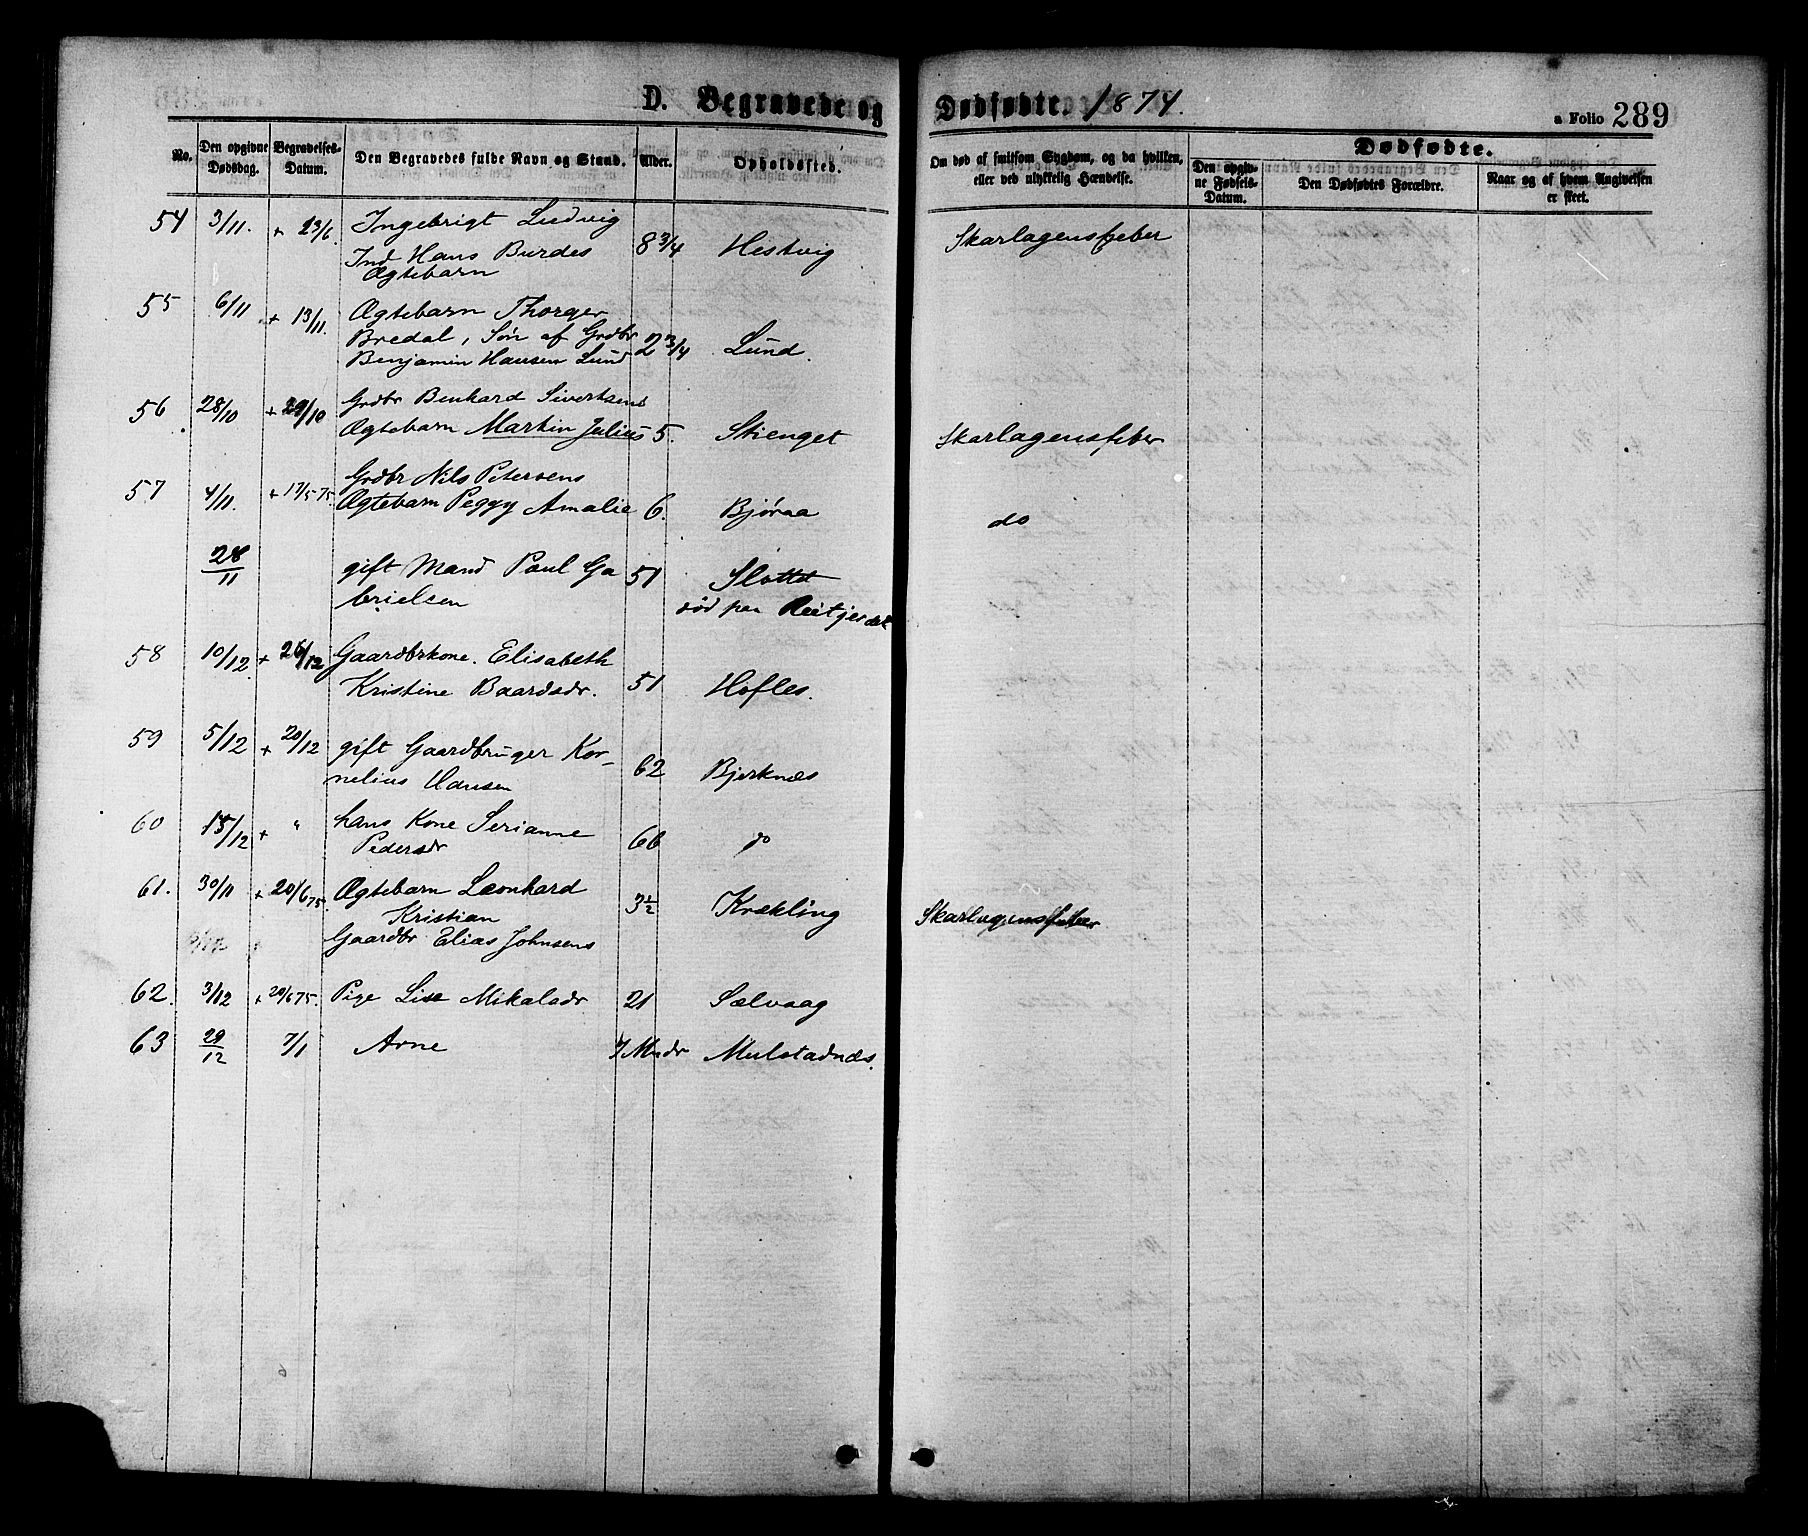 D. Begravede og Dødfødte. 1874.
a Folio 289
No.
Den opgivne Dødsdag.
Begravelses-Datum.
Den Begravedes fulde Navn og Stand.
Alder.
Opholdssted.
Om død af smitsom Sygdom, og da hvilken,
eller ved ulykkelig Hændelse.
Dødfødte.
Den opgiv-
ne Fødsels-
Datum.
Den Dødfødtes Forældre.
Naar og af hvem Angivelsen
er skeet.
54 3/11. + 23/6. Ingebrigt Ludvig
Ind Hans Burdes 8 3/4 Hestvig Skarlagensfeber
Ægtebarn
55 6/11 + 13/11. Ægtebarn Thorger
Bredal, Søn af Grdbr
Benjamin Hansen Lund 2 3/4 Lund.
56 28/10 + 29/10 Grdbr Benhard Sivertsens
Ægtebarn Martin Julius 5. Stienget Skarlagensfeber
57 4/11. + 17/5 75. Grdbr Nils Petersens
Ægtebarn Peggy Amalie 6. Bjøraa do
28/11 gift Mand Paul Ga 51
brielsen død paa
58 10/12. + 26/12 Gaardbrkone. Elisabeth
Kristine Baardsdr. 51 Hofles.
59 5/12 + 20/12 gift Gaardbruger Kor-
nelius Hansen 62 Bjerknæs
60 15/12 + " hans Kone Serianne
Pedersdr 66 do
61. 30/11 + 20/6 75. Ægtebarn Leonhard
Kristian 3½ Krækling Skarlagensfeber
Gaardbr Elias Johnsens
62. 3/12 + 20/6 75. Pige Lise Mikalsdr 21 Sælvaag
63 29/12 7/1 Arne 7 Mndr Mulstadnæs.